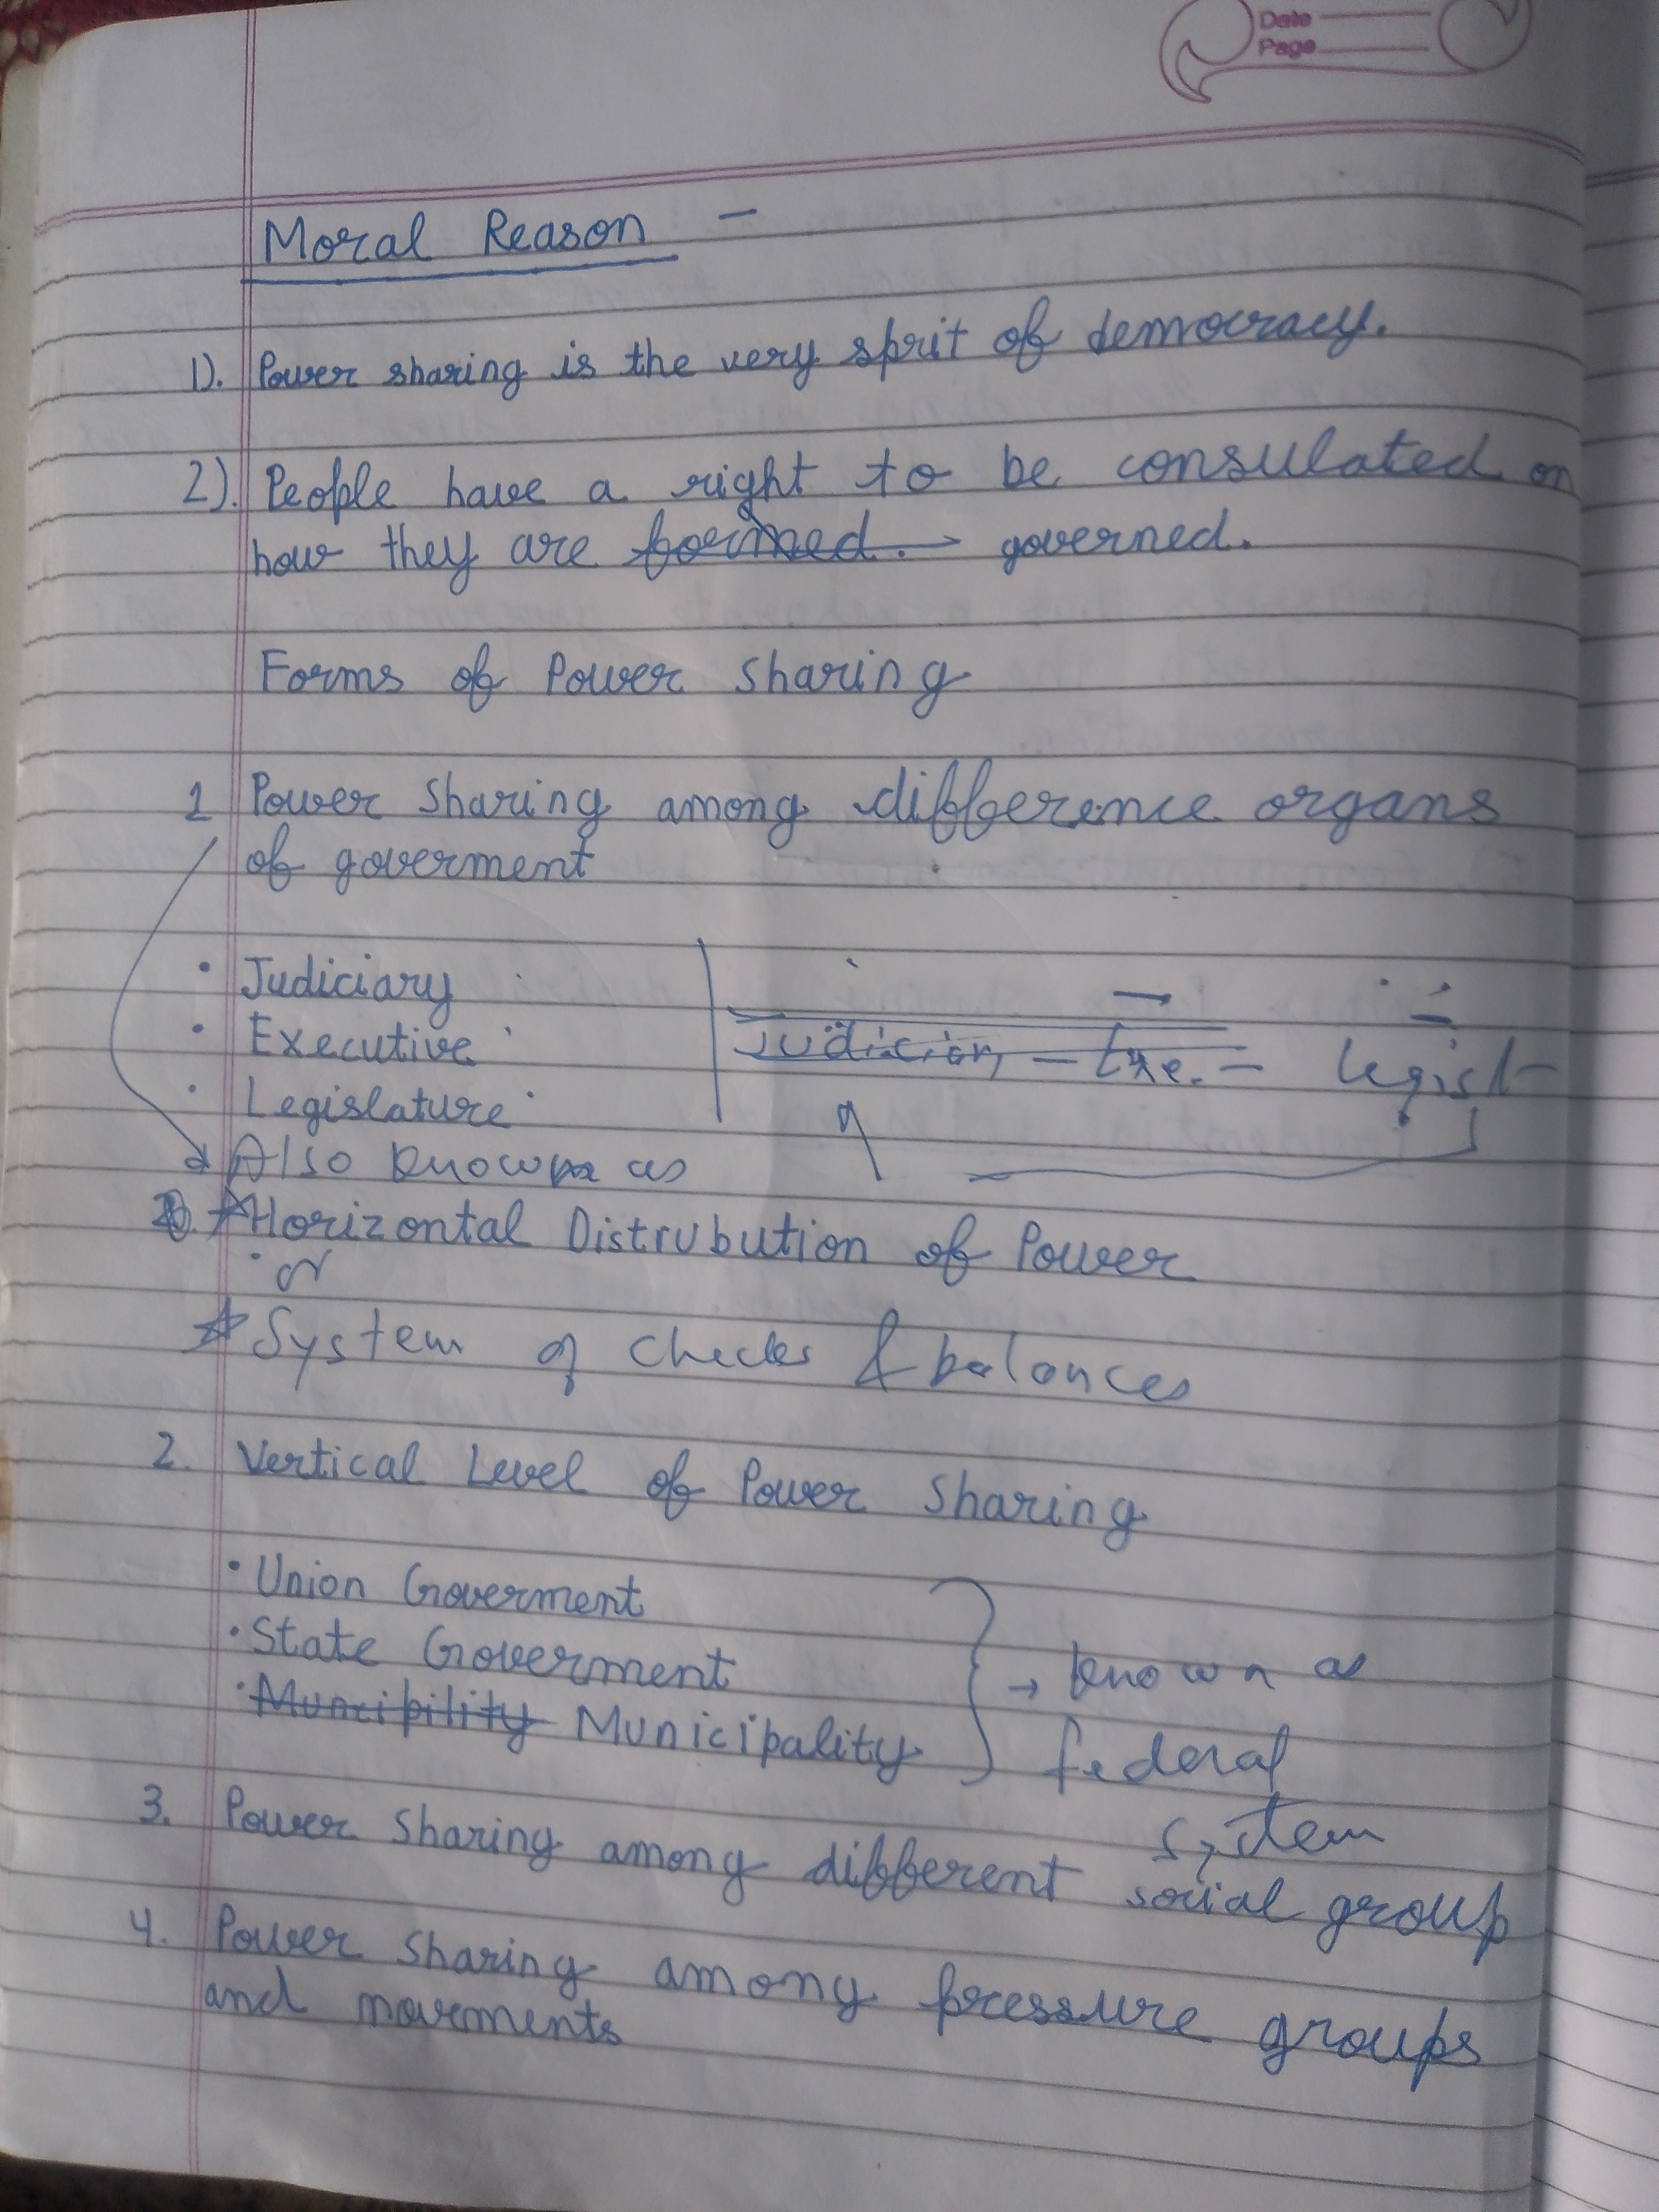 Date
Page
Moral Reason -
1). Power sharing is the very sprit of democracy.
2). People have a right to be consulated on
how they are formed. → governed.
Forms of Power sharing
1 Power sharing among difference organs
of goverment
• Judiciary
• Executive
• Legislature
Exe. - legisl-
Also known as
* Horizontal Distrubution of Power
or
* System of checks & balances
2. Vertical Level of Power sharing
• Union Goverment
• State Goverment
→ known as
• Muncipility Municipality
federal
system
3. Power sharing among different social group
4. Power sharing among pressure groups
and movements